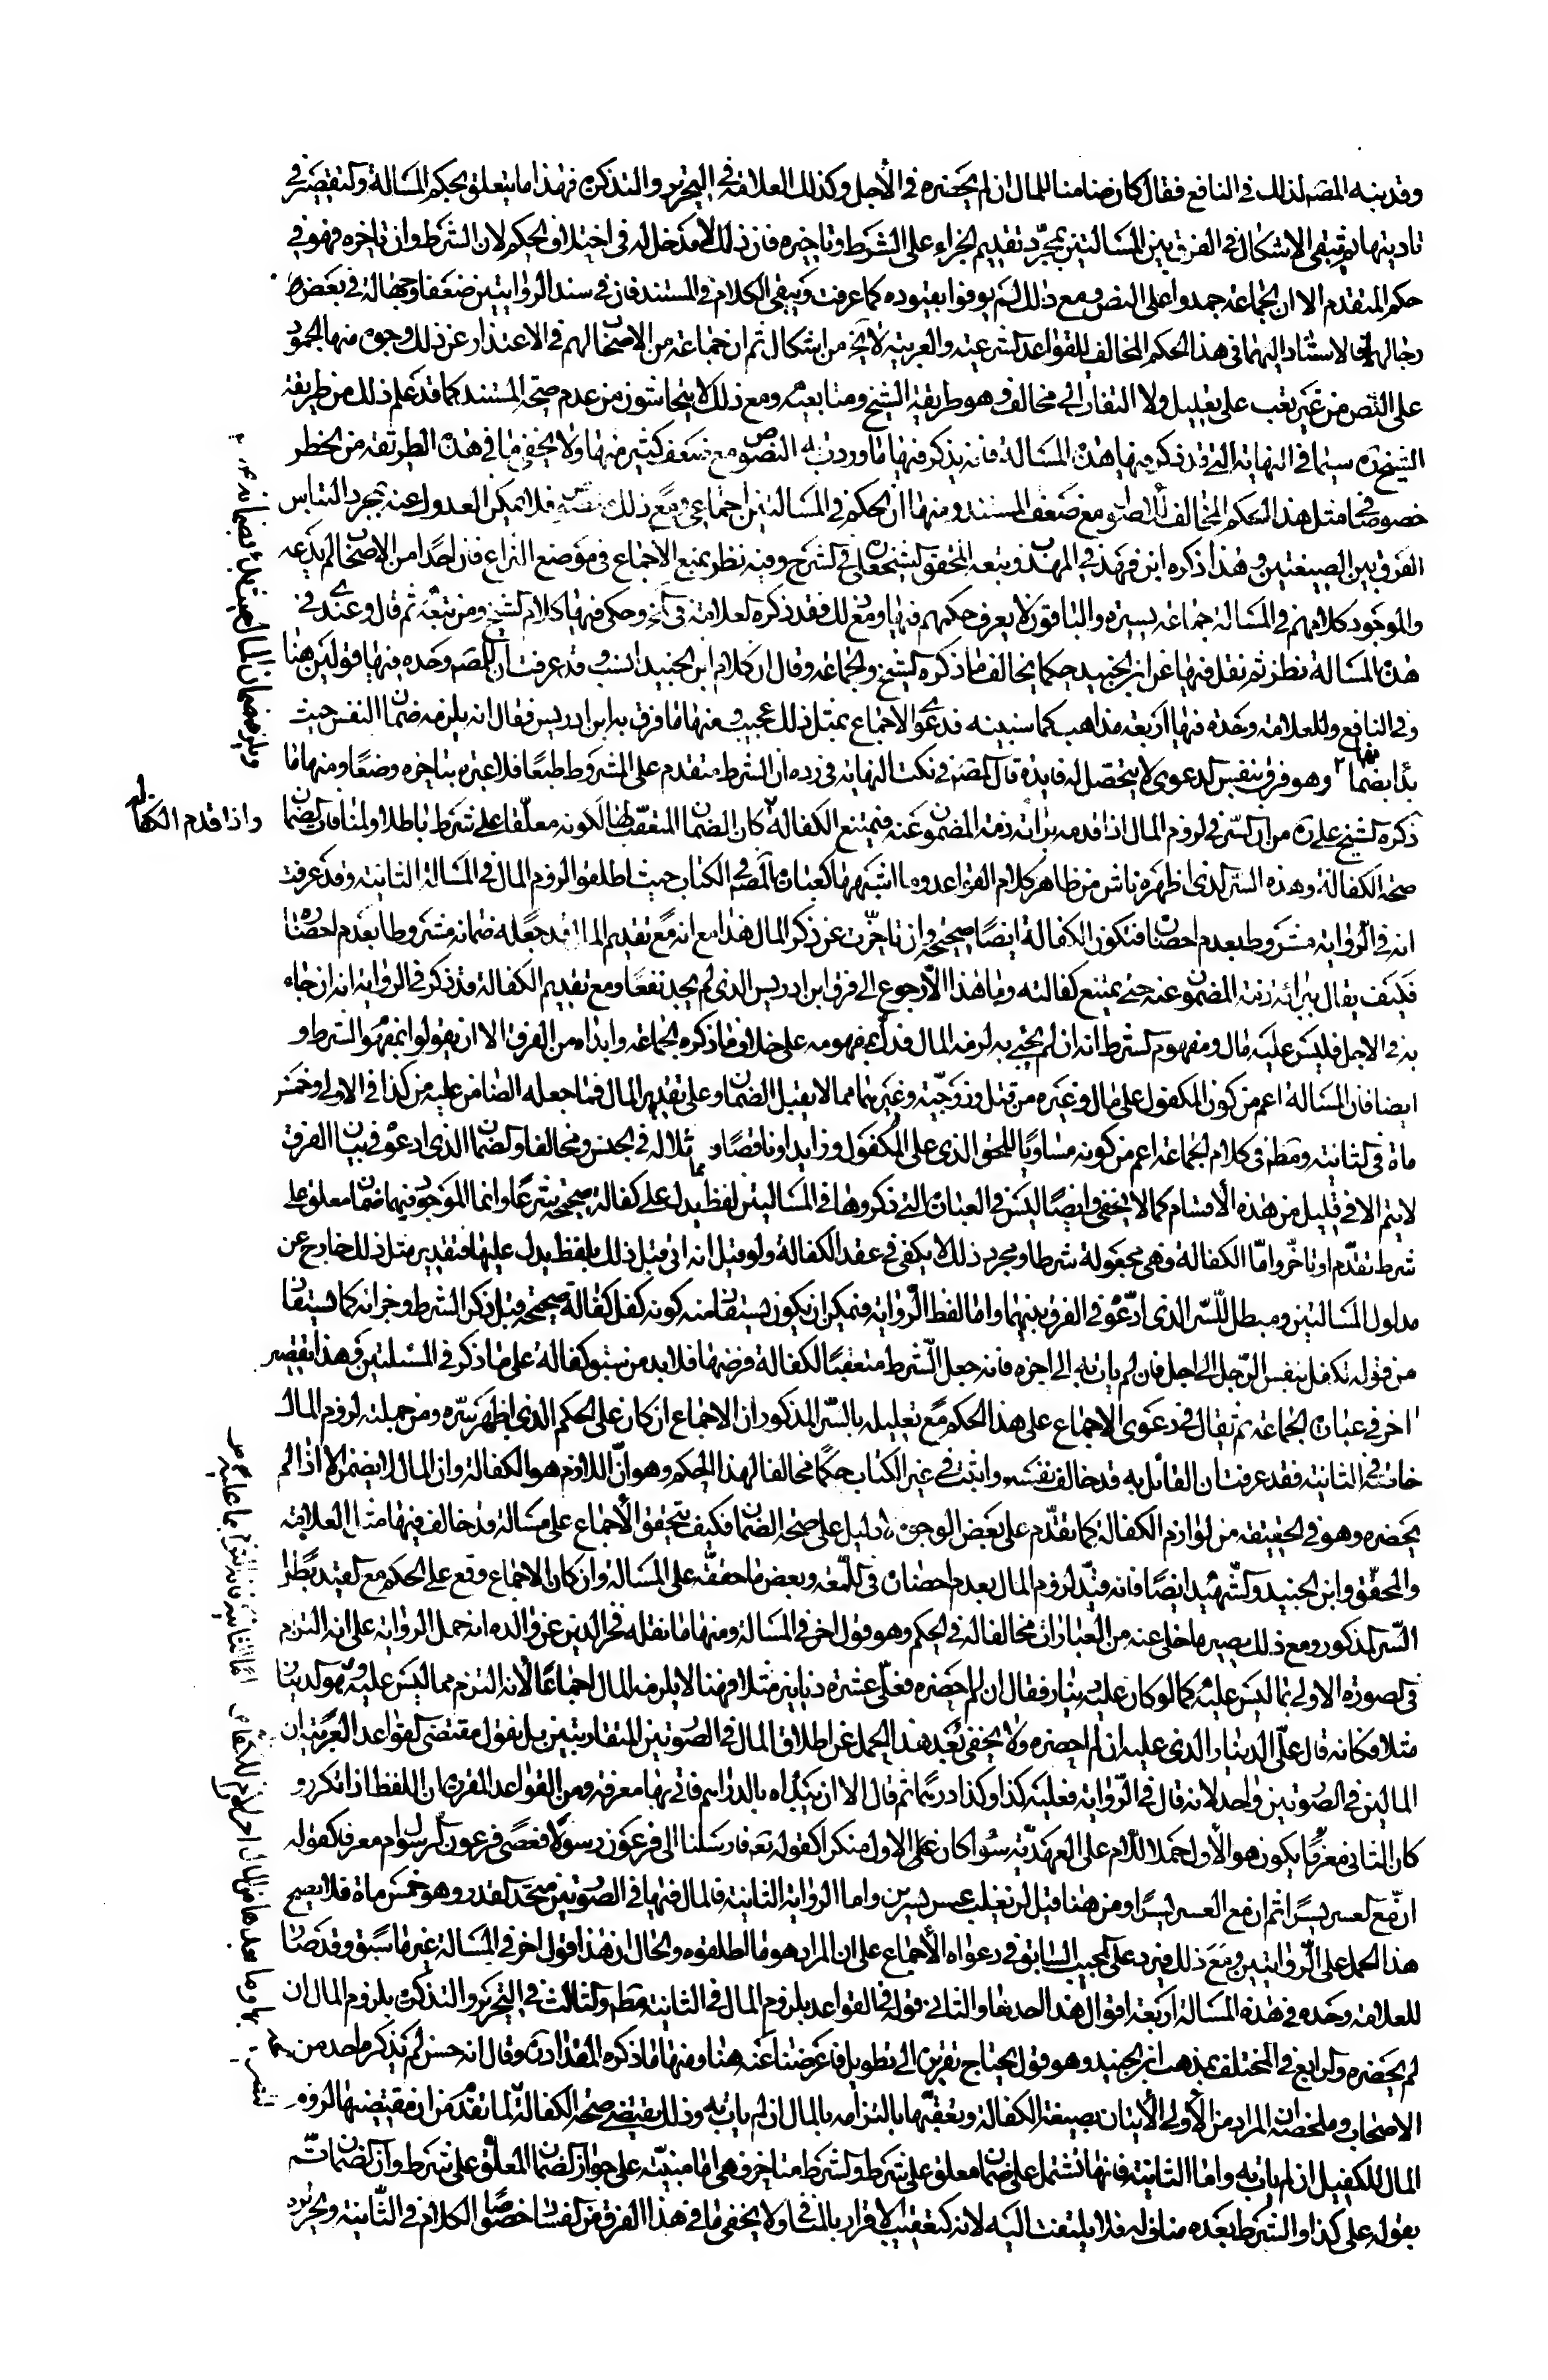 وقد ينبه المصـ لذلك في النافع فقال كان ضامنا للمال ان لم يحضره في الأجل وكذلك العلامة في التحرير والتذكرة فهذا ما يتعلق بحكم المسالة وتنقيصهم في
تاديتها ثم يبقى الاشكال في الفرق بين المسالتين بمجرد تقديم الجزاء على الشرط وتاخيره فان ذلك لا مدخل له في اختلاف الحكم لان الشرط وان تاخر فهو في
حكم المتقدم الا ان الجماعة جمدوا على النص ومع ذلك لم يوفوا بقيوده كما عرفت ويبقى الكلام في المستند فان في سند الروايتين ضعفا وجهالة في بعض
رجالهما فالاستناد اليهما في هذا الحكم المخالف للقواعد الشرعية والعربية لا يخ من اشكال ثم ان جماعة من الاصحاب لهم في الاعتذار عن ذلك وجوه منها الجمود
على النص من غير تعب على تعليل ولا التفات الى مخالف وهو طريقة الشيخ ومتابعيه ومع ذلك لا يتحاشون من عدم صحة المستند كما قد علم ذلك من طريقة
الشيخ ره سيما في النهاية التي قد ذكر فيها هذه المسالة فانه يذكر فيها ما وردت به النصوص مع ضعف كثير منها ولا يخفى ما في هذه الطريقة من الخطر
خصوصا في مثل هذا الحكم المخالف للأصول مع ضعف المستند ومنها ان الحكم في المسالتين اجماعي ومع ذلك فلا يمكن العدول عنه بمجرد التباس
الفرق بين الصيغتين وهذا ذكره ابن فهد في المهذب وتبعه المحقق الشيخ علي في الشرح وفيه نظر بمنع الاجماع في موضع النزاع فان احدا من الاصحاب لم يدعه
والموجود كلامهم في المسالة جماعة يسيرة والباقون لا يعرف حكمهم فيها ومع ذلك فقد ذكر العلامة في وحكى فيها كلام الشيخ ومن تبعه ثم قال وعندي في
هذه المسالة نظر ثم نقل فيها عن ابن الجنيد حكما يخالف ما ذكره الشيخ والجماعة وقال ان كلام ابن الجنيد انسب وقد عرفت ان للمصـ وحده فيها قولين هنا
وفي النافع وللعلامة وحده فيها اربعة مذاهب كما سنبينه فدعوى الاجماع بمثل ذلك عجيب ومنها ما فرق به ابن ادريس فقال انه يلزمه ضمان النفس حيث
بدأ بضمانها وهو فرق بنفس الدعوى لا يتحصل له فايدة قال المصـ في نكت النهاية في رده ان الشرط متقدم على المشروط طبعا فلا عبرة بتاخره وضعا ومنها ما
ذكره الشيخ علي ره من ان السر في لزوم المال اذا قدمه براءة ذمة المضمون عنه فيمتنع الكفالة كان الضمان المتعقب لها لكونه معلقا على شرط باطلا ولمنافاة الضمان
واذا قدم الكفالة
صحة الكفالة وهذه السر الذي اظهره ناش من ظاهر كلام القواعد وما اشبهها كعبارة المصـ في الكتاب حيث اطلقوا لزوم المال في المسالة الثانية وقد عرفت
انه في الرواية مشروط بعدم احضاره فتكون الكفالة ايضا صحيحة وان تاخرت عن ذكر المال هذا مع انه مع تقديم المال قد جعله ضمانه مشروطا بعدم احضاره
فكيف يقال ببرائة ذمة المضمون عنه حتى يمتنع كفالته وما هذا الا رجوع الى فرق ابن ادريس الذي لم يجد نفعا ومع تقديم الكفالة قد ذكر في الرواية انه ان جاء
به في الاجل فليس عليه مال ومفهوم الشرط انه ان لم يجئ به لزمه المال فدل بمفهومه على خلاف ما ذكره الجماعة وابداه من الفرق الا ان يقولوا بمفهوم الشرط و
ايضا فان المسالة اعم من كون المكفول على مال وغيره من قتل وزوجية وغيرهما مما لا يقبل الضمان وعلى تقدير المال فما جعله الضامن عليه من كذا في الاولى وخمس
ماة في الثانية ومط في كلام الجماعة اعم من كونه مساويا للحق الذي على المكفول وزايدا وناقصا ومماثلا له في الجنس ومخالفا والضمان الذي ادعوه في بيان الفرق
لا يتم الا في قليل من هذه الأقسام كما لا يخفى وايضا ليس في العبارة التي ذكروها في المسالتين لفظ يدل على كفالة صحيحة شرعا وانما الموجود فيهما ضمان معلق على
شرط تقدم او تاخر واما الكفالة وهي مجعولة شرطا ومجرد ذلك لا يكفي في عقد الكفالة ولو قيل انه اتى قبل ذلك بلفظ يدل عليها فتقدير مثل ذلك خارج عن
مدلول المسالتين ومبطل للسر الذي ادعوه في الفرق بينهما واما لفظ الرواية فيمكن ان يكون يستفاد منه كونه كفل كفالة صحيحة قبل ذكر الشرط وجزائه كما يستفاد
من قوله تكفل بنفس الرجل الى اجل فان لم يات به الى اخره فانه جعل الشرط متعقبا الكفالة فرضها فلا بد من سبق كفالة على ما ذكر في المسئلتين وهذا تقصير
اخر في عبارة الجماعة ثم يقال في دعوى الاجماع على هذا الحكم مع تعليله بالسر المذكور ان الاجماع ان كان على الحكم الذي اظهر سره ومن جملته لزوم المال
خاصة في الثانية فقد عرفت ان القائل به قد خالف نفسه واثبت في غير الكتاب حكما مخالفا لهذا الحكم وهو ان اللازم هو الكفالة وان المال لا يضمن الا اذا لم
يحضره وهو في الحقيقة من لوازم الكفالة كما تقدم على بعض الوجوه لا دليل على صحة الضمان فكيف يتحقق الأجماع على مسالة قد خالف فيها مثل العلامة
والمحقق وابن الجنيد والشهيد ايضا فانه قيد لزوم المال بعدم احضاره في اللمعة وبعض ما حققه على المسالة وان كان الاجماع وقع على الحكم مع القيد بطل
السر المذكور ومع ذلك يصير ما خلى عنه من العبارات مخالفا له في الحكم وهو قول اخر في المسالة ومنها ما نقله فخر الدين عن والده انه حمل الرواية على انه التزم
في الصورة الاولى بما ليس عليه كما لو كان عليه دينار فقال ان لم احضره فعلي عشرة دنانير مثلا فهنا لا يلزمه المال اجماعا لأنه التزم مما ليس عليه
مثلا فكانه قال علي الدينار الذي عليه ان لم احضره ولا يخفى بعد هذا الحمل عن اطلاق المال في الصورتين المتقاربتين بل نقول مقتضى القواعد العربية ان
المالين في الصورتين واحد لانه قال في الرواية فعليه كذا وكذا درهما ثم قال الا ان يبداه بالدراهم فاتى بها معرفة ومن القواعد المقررة ان اللفظ اذا تكرر و
كان الثاني معرفا يكون هو الأول حملا للام على العهدية سواء كان على الاول منكرا كقوله تعه فارسلنا الى فرعون رسولا فعصى فرعون الرسول ام معرفا كقوله
ان مع العسر يسرا ثم ان مع العسر يسرا ومن هنا قيل لن يغلب عسر يسرين واما الرواية الثانية فالمال فيها في الصورتين متحد القدر وهو خمس ماة فلا يصح
هذا الحمل على الروايتين ومع ذلك فيرد على المجيب السابق في دعواه الأجماع على ان المراد هو ما اطلقوه والحال ان هذا قول اخر في المسالة غير ما سبق وقد صار
للعلامة وحده في هذه المسالة اربعة اقوال هذا احدها والثاني قوله في القواعد بلزوم المال في الثانية مط والثالث في التحرير والتذكرة بلزوم المال ان
لم يحضره والرابع في المختلف بمذهب ابن الجنيد وهو قول يحتاج تقريره الى تطويل فاعرضنا عنه هنا ومنها ما ذكره المقداد ره وقال انه حسن لم يذكره احد من
الاصحاب وملخصه ان المراد من الأولى الأتيان بصيغة الكفالة وتعقبها بالتزامه بالمال ان لم يات به وذلك يقتضي صحة الكفالة لما تقدم من ان مقتضيها لزوم
المال للكفيل ان لم يات به واما الثانية فانها تشتمل على ضمان معلق على شرط والشرط متاخر فهي اما مبنية على جواز الضمان المعلق على شرط وان الضمان تم
بقوله علي كذا والشرط بعده مناف له فلا يلتفت اليه لانه كتعقيب الاقرار بالمنافي ولا يخفى ما في هذا الفرق من الفساد خصوصا الكلام في الثانية وتجويز